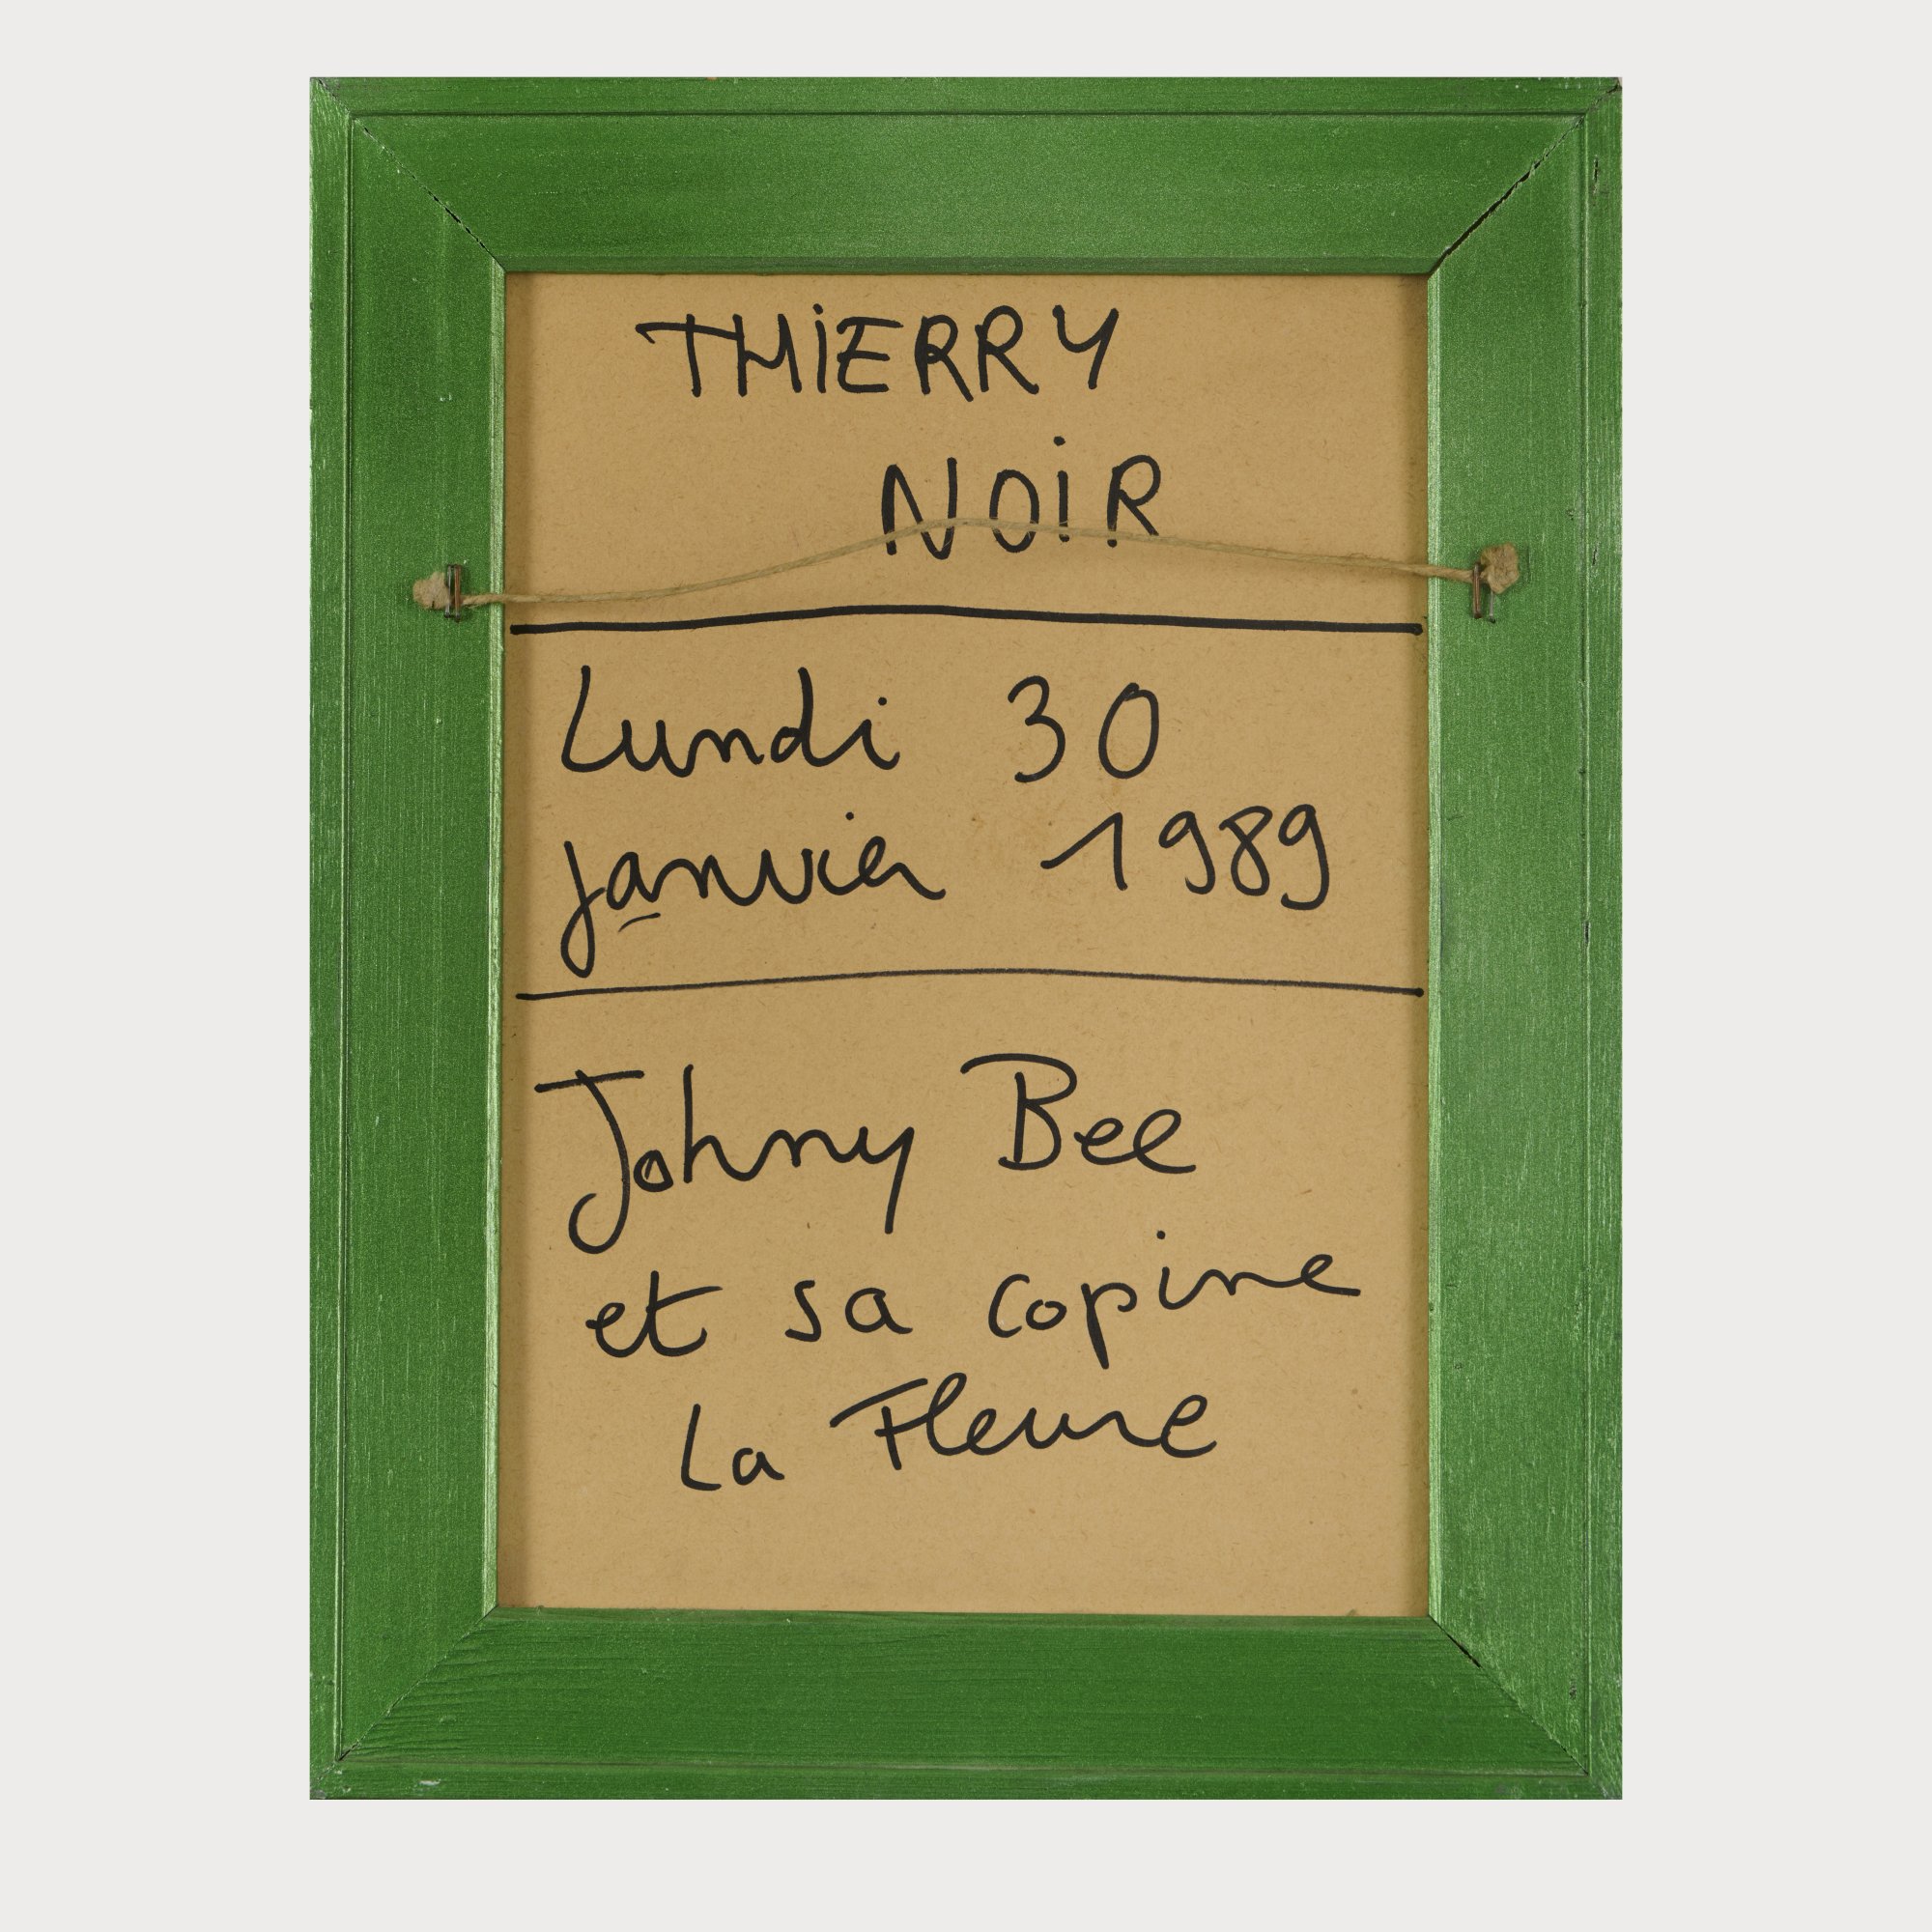 THiERRY
NOiR
Lundi 30
janvier 1989
Johny Bee
et sa copine
La Fleure